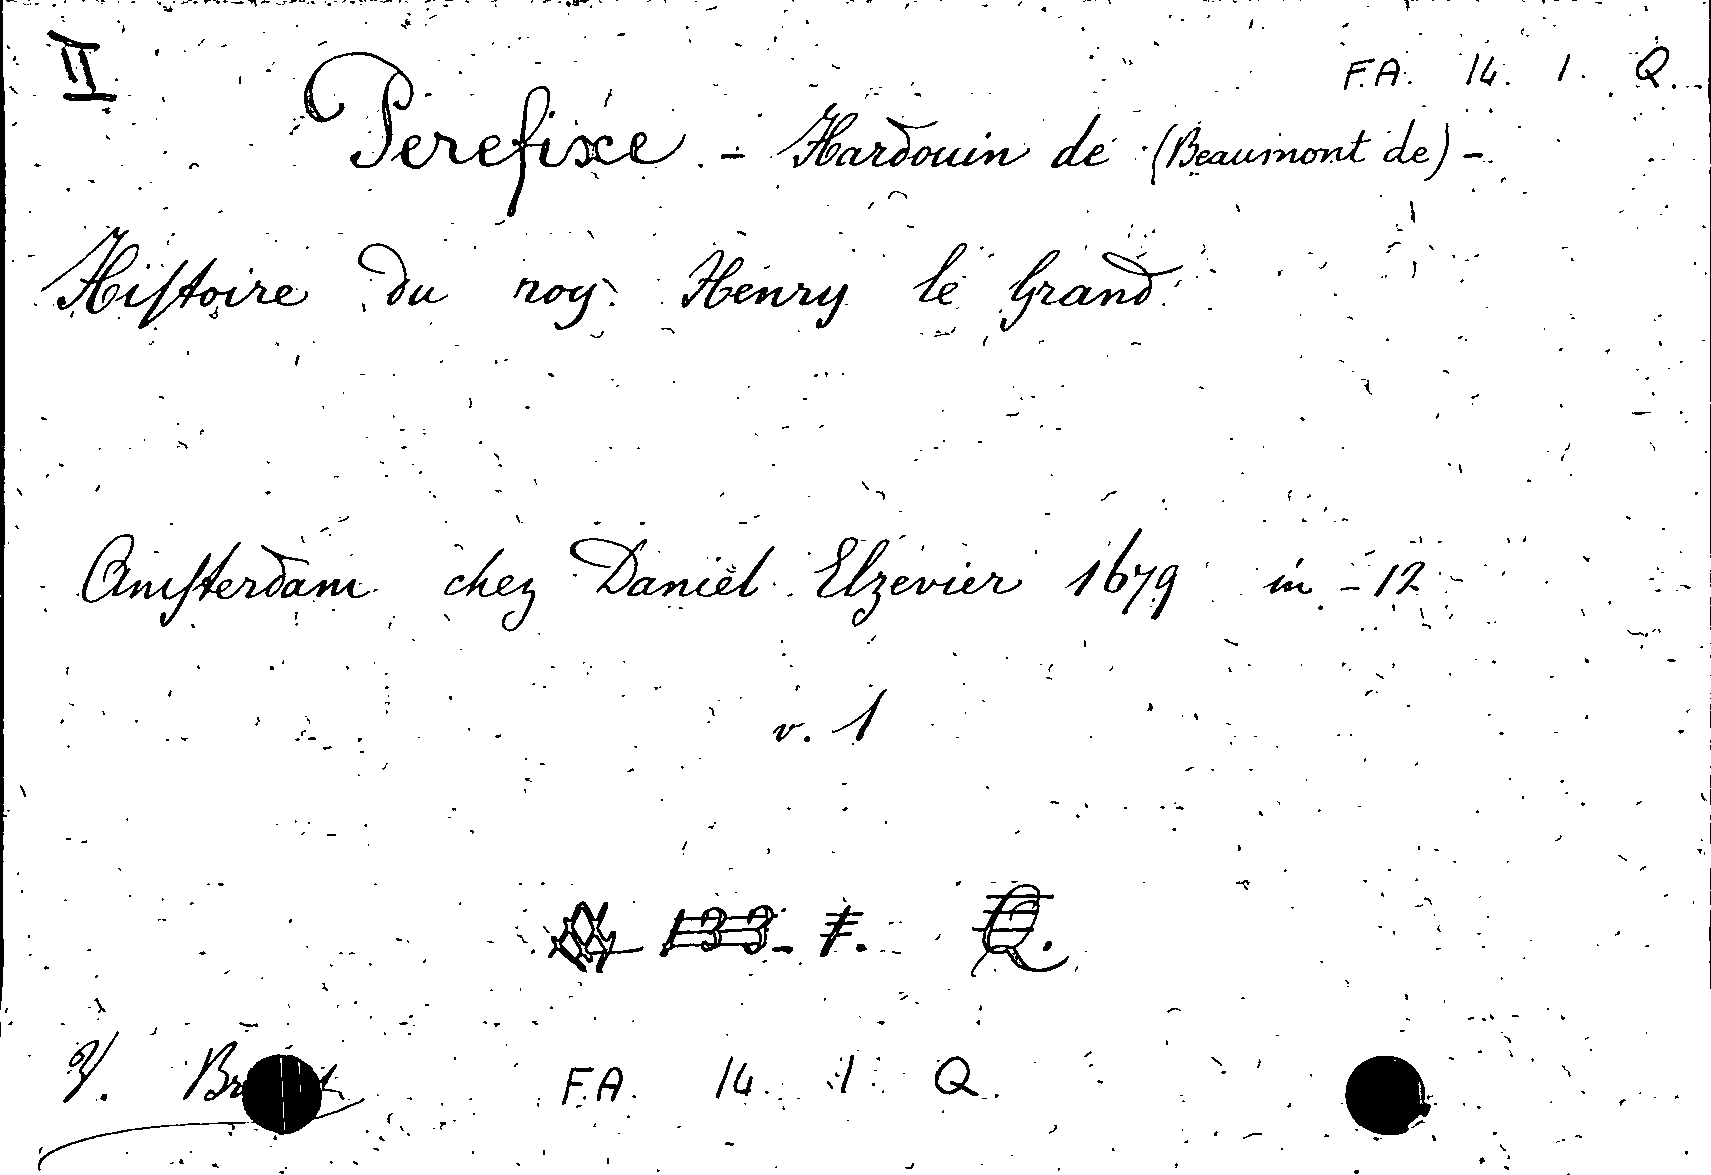 II
F.A. 14. 1. Q.
Perefixe - Hardouin de (Beaumont de) -
Histoire du roy Henry le Grand
Amsterdam chez Daniel Elzevier 1679 in-12
v. 1
133 - 1. Q.
V.
F.A. 14. 1 Q.